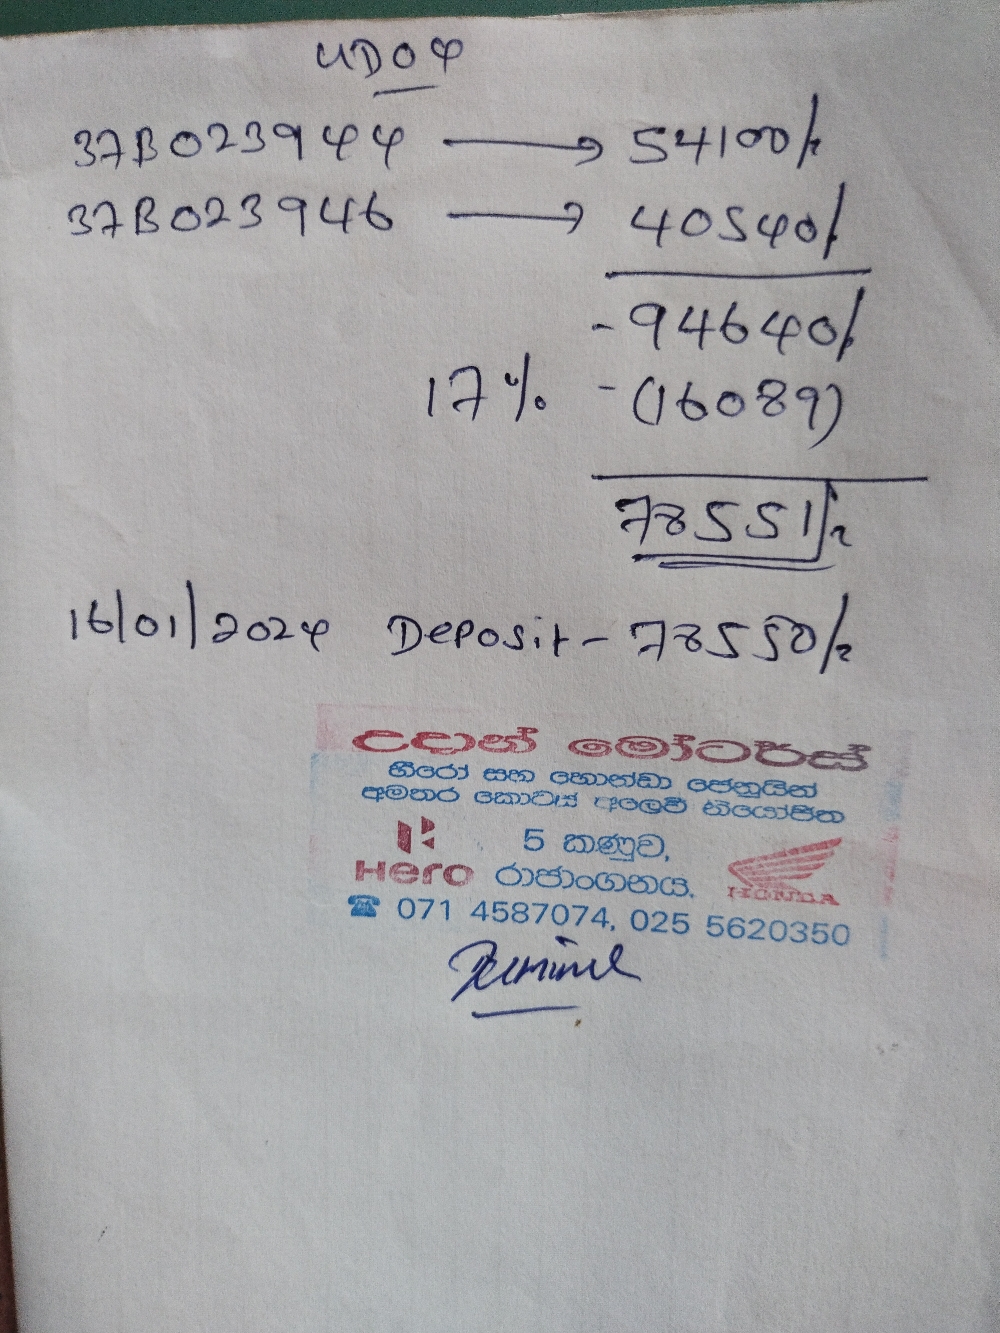 UD04
37B023944 → 54100/-
37B023946 → 40540/-
- 94640/-
17% - (16089)
78551/-
16/01/2024 Deposit - 78550/-
උදාන් මෝටර්ස්
හීරෝ සහ හොන්ඩා ජෙනුයින්
අමතර කොටස් අලෙවි නියෝජිත
5 කණුව,
Hero රාජාංගනය. HONDA
☎ 071 4587074, 025 5620350